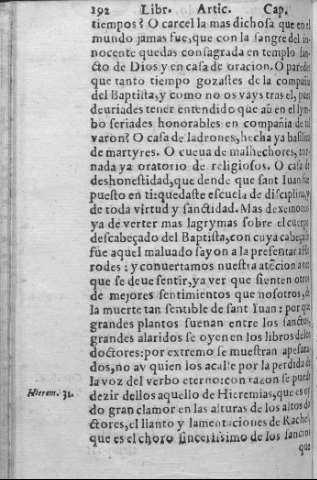 192 Libr. Artic. Cap.
tiempos? O carcel la mas dichosa que en el
mundo jamas fue, que con la sangre del in-
nocente quedas consagrada en templo san-
cto de Dios y en casa de oracion. O paredes
que tanto tiempo gozastes de la compañia
del Baptista, y como no os vays tras el, pues
deuriades tener entendido que aũ en el lym-
bo seriades honorables en compañia de tal
varon? O casa de ladrones, hecha ya basilica
de martyres. O cueua de malhechores, tor-
nada ya oratorio de religiosos. O casa de
deshonestidad, que dende que sant Iuan fue
puesto en ti: quedaste escuela de disciplina, y
de toda virtud y sanctidad. Mas dexemonos
ya de verter mas lagrymas sobre el cuerpo
descabeçado del Baptista, con cuya cabeça se
fue aquel maluado sayon a la presentar a He
rodes: y conuertamos nuestra atēcion a ver
que se deue sentir, ya ver que sienten otros
de mejores sentimientos que nosotros, de
la muerte tan sentible de sant Iuan: por que
grandes plantos suenan entre los sanctos,
grandes alaridos se oyen en los libros de los
doctores: por extremo se muestran apesura-
dos, no ay quien los acalle por la perdida de
la voz del verbo eterno: con razon se puede
Hierem. 31. dezir dellos aquello de Hieremias, que es oy
do gran clamor en las alturas de los altos do
ctores, el llanto y lamentaciones de Rachel,
que es el choro sincerissimo de los sanctos
que